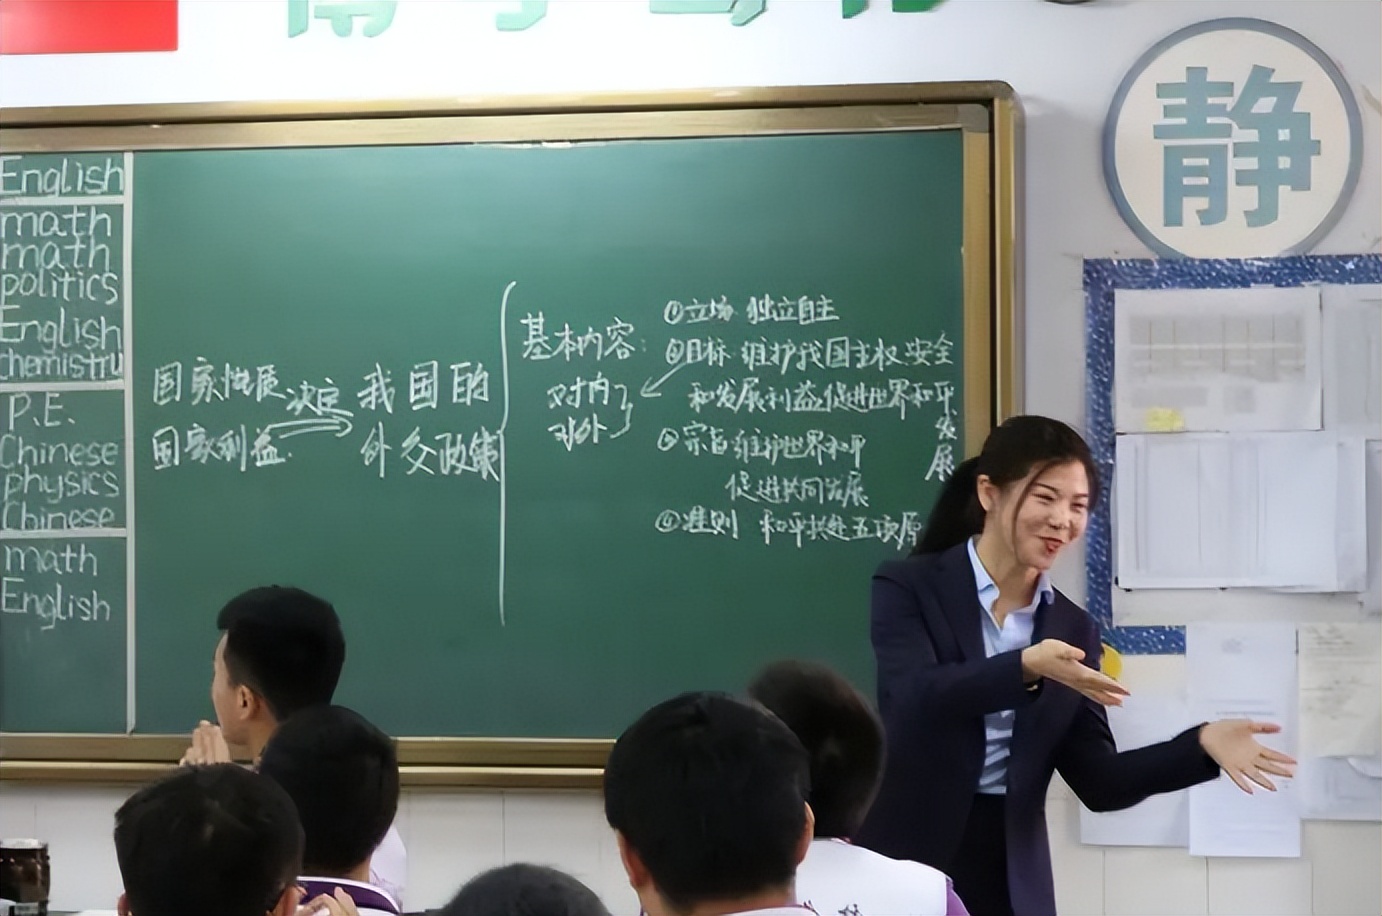 静
English
math
math
politics
English
chemistry
P.E.
Chinese
physics
Chinese
math
English
国家性质
国家利益
决定
我国的
外交政策
基本内容:
对内
对外
①立场 独立自主
②目标 维护我国主权 安全
和发展利益,促进世界和平
发
展
③宗旨 维护世界和平
促进共同发展
④准则 和平共处五项原